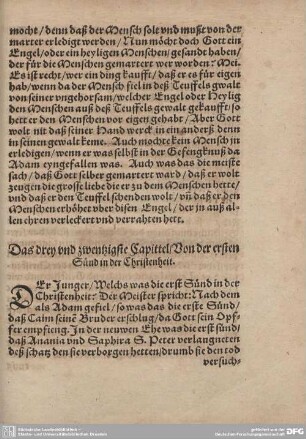 mocht / denn daß der Mensch solt vnd must von der
marter erledigt werden / Nun möcht doch Gott ein
Engel / oder ein heyligen Menschen / gesandt haben /
der für die Menschen gemartert wer worden: Mei.
Es ist recht / wer ein ding kaufft / daß er es für eigen
hab / wenn da der Mensch fiel in deß Teuffels gwalt
von seiner vngehorsam / welcher Engel oder Heylig
den Menschen auß deß Teuffels gewalt gekaufft / so
hett er den Menschen vor eigen gehabt / Aber Gott
wolt nit daß seiner Hand werck in ein anderß denn
in seinen gewalt keme. Auch mochte kein Mensch in
erledigen / wenn er was selbst in der Gefengknuß da
Adam eyngefallen was. Auch was das die meiste
sach / daß Gott selber gemartert ward / daß er wolt
zeugen die grosse liebe die er zu dem Menschen hette /
vnd daß er den Teuffel schenden wolt / vñ daß er den
Menschen erhöhet vber disen Engel / der in auß al-
len ehren verleckert vnd verrahten hett.
Das drey vnd zwentzigste Capittel / Von der ersten
Sünd in der Christenheit.
DEr Junger / Welchs was die erst Sünd in der
Christenheit: Der Meister spricht: Nach dem
als Adam gefiel / so was das die erste Sünd /
daß Caim seinē Bruder erschlug / da Gott sein Opf-
fer empfieng. In der neuwen Ehe was die erst sünd /
daß Anania vnd Saphira S. Peter verlaugneten
deß schatz den sie verborgen hetten / drumb sie den tod
versuch-